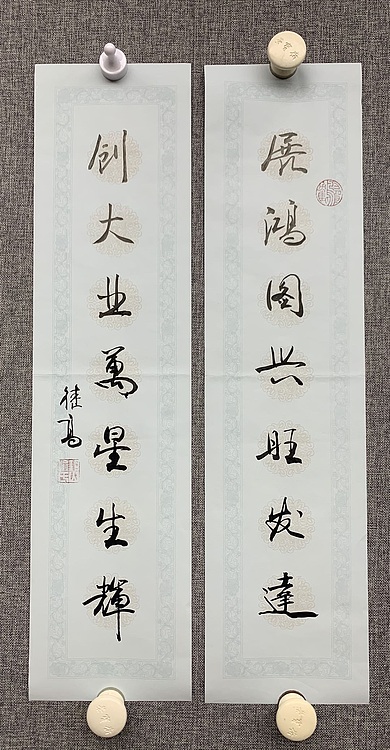 展鸿图兴旺发達
创大业萬星生輝